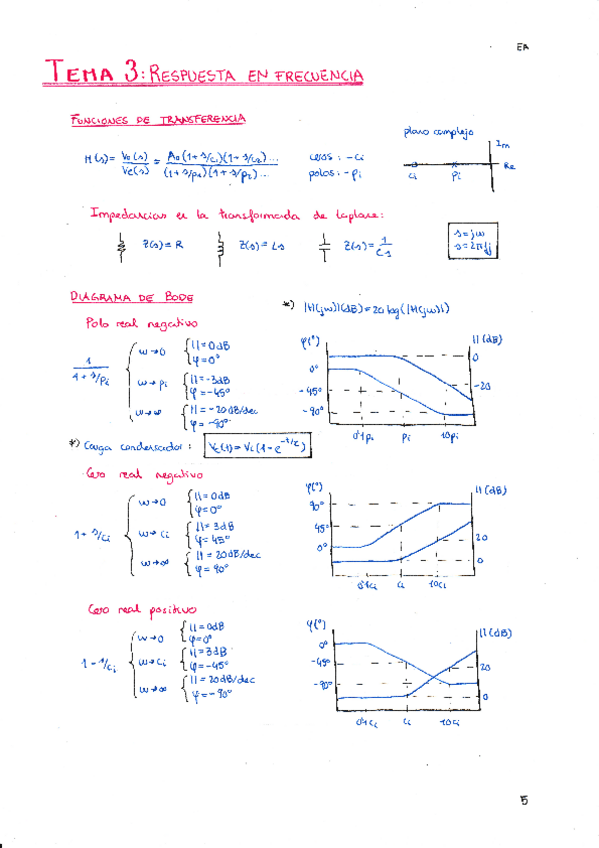 EA
TEMA 3: RESPUESTA EN FRECUENCIA
FUNCIONES DE TRANSFERENCIA
plano complejo
H(s) = Vo(s)/Ve(s) = Ao(1+s/c1)(1+s/c2)... / (1+s/p1)(1+s/p2)...
ceros: -ci
polos: -pi
Im
Re
ci pi
Impedancias en la transformada de Laplace:
Z(s) = R Z(s) = Ls Z(s) = 1/Cs
s = jω
s = 2πfj
DIAGRAMA DE BODE
*) |H(jω)|(dB) = 20 log(|H(jω)|)
Polo real negativo
1/(1+s/pi)
ω→0 { || = 0dB
φ = 0°
ω→pi { || = -3dB
φ = -45°
ω→∞ { || = -20dB/dec
φ = -90°
φ(°) || (dB)
0
0°
-20
-45°
-90°
0'1pi pi 10pi
*) Carga condensador: Vc(t) = Vi(1-e^(-t/τ))
Cero real negativo
1+s/ci
ω→0 { || = 0dB
φ = 0°
ω→ci { || = 3dB
φ = 45°
ω→∞ { || = 20dB/dec
φ = 90°
φ(°) || (dB)
90°
45°
20
0°
0
0'1ci ci 10ci
Cero real positivo
1-s/ci
ω→0 { || = 0dB
φ = 0°
ω→ci { || = 3dB
φ = -45°
ω→∞ { || = 20dB/dec
φ = -90°
φ(°) || (dB)
0°
-45°
20
-90°
0
0'1ci ci 10ci
5